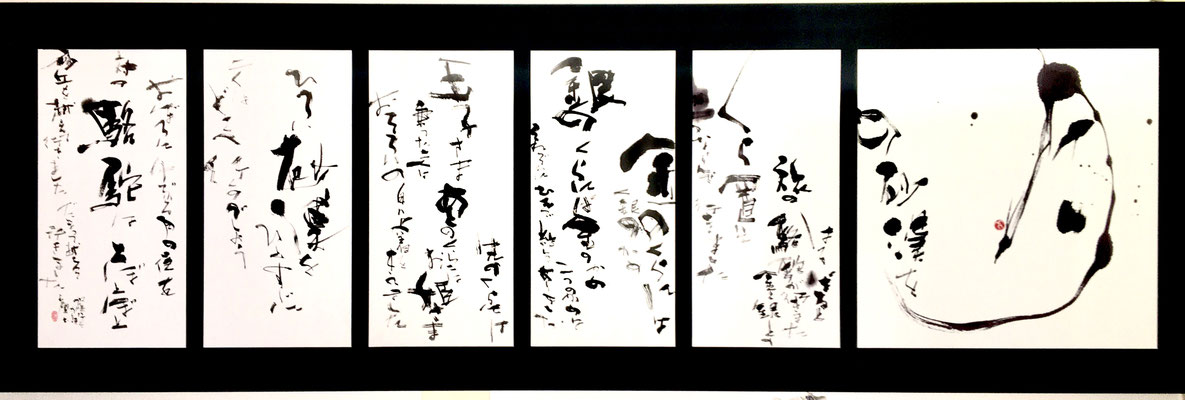 月の砂漠を
はるばると
旅の駱駝が行きました
金と銀との
くら置いて
二つならんで行きました
金のくらには
銀のかめ
銀のくらには金のかめ
二つのかめは
それぞれにひもで結んでありました
先のくらには
王子さま
あとのくらには
お姫さま
乗った二人は
おそろいの白い上着を着てました
広い砂漠を
ひとすじに
二人は
どこへ行くのでしょう
おぼろにけぶる月の夜を
対の駱駝はとぼとぼと
砂丘を越えて行きました だまって越えて行きました